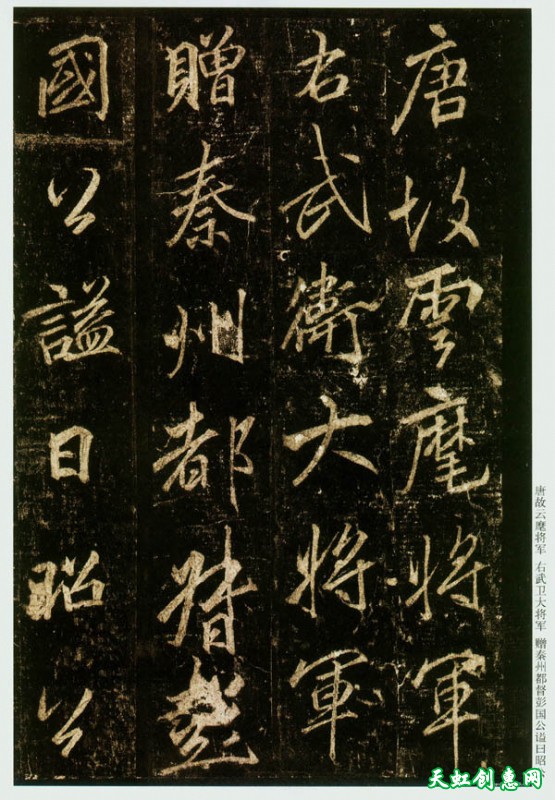 唐故雲麾將軍
右武衛大將軍
贈秦州都督彭
國公謚曰昭公
唐故云麾将军 右武卫大将军 赠秦州都督彭国公谥曰昭
天虹创惠网